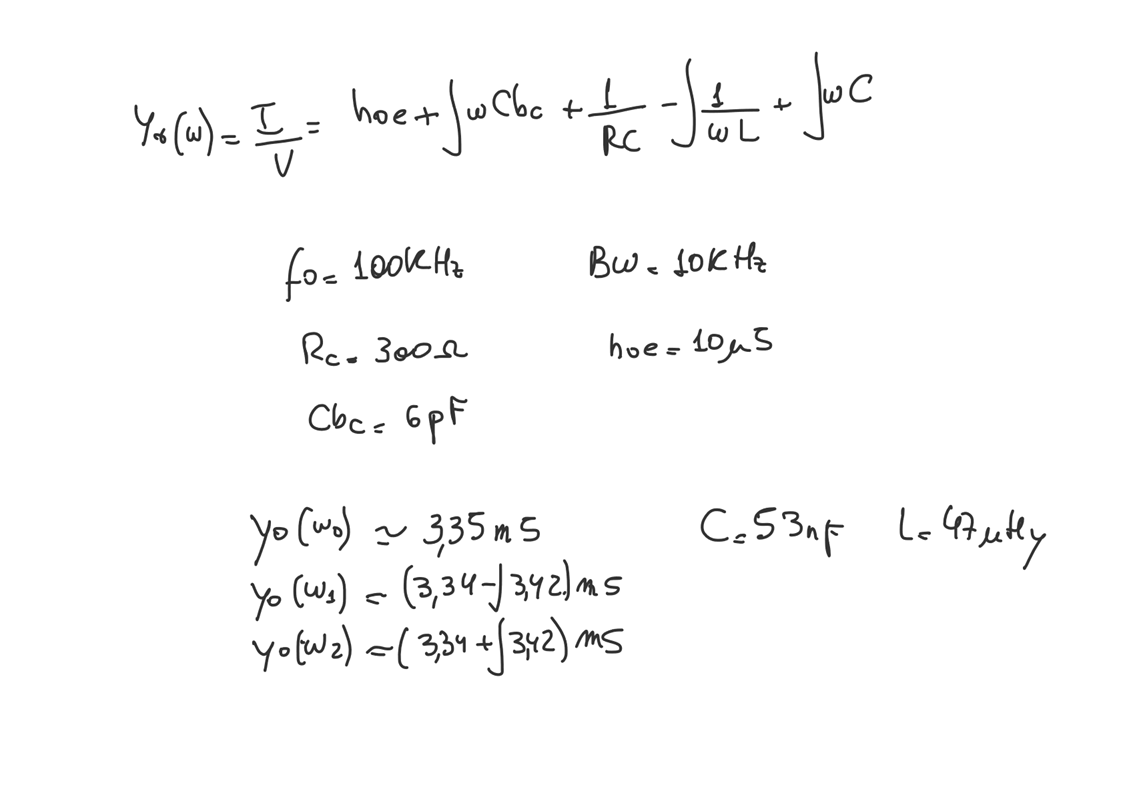 Yo(ω) = I/V = hoe + jωCbc + 1/RC - j 1/ωL + jωC
fo = 100KHz Bω = 10KHz
Rc = 300Ω hoe = 10μS
Cbc = 6pF
yo(ω0) ≃ 3,35mS C = 53nF L = 47μHy
yo(ω1) = (3,34 - j3,42)mS
yo(ω2) = (3,34 + j3,42)mS